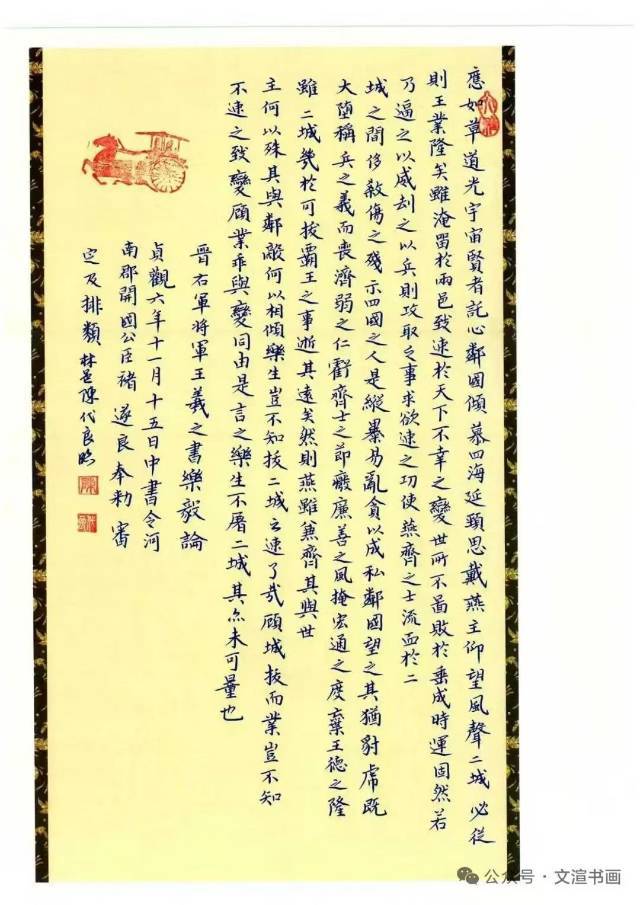 應如草道光宇宙賢者託心鄰國傾慕四海延頸思戴燕主仰望風聲二城必從
則王業隆矣雖淹留於兩邑致速於天下不幸之變世所不啚敗於垂成時運固然若
乃逼之以威刦之以兵則攻取之事求欲速之功使燕齊之士流血於二
城之間侈敘傷之殘示四國之人是縱暴易亂貪以成私鄰國望之其猶豺虎既
大堕稱兵之義而喪濟弱之仁虧齊士之節廢廉善之風掩宏通之度棄王德之隆
雖二城幾於可拔霸王之事逝其遠矣然則燕雖兼齊其與世
主何以殊其與鄰敵何以相傾樂生豈不知拔二城之速了哉顧城拔而業豈不知
不速之致變顧業乖與變同由是言之樂生不屠二城其亦未可量也
晉右軍将軍王羲之書樂毅論
貞觀六年十一月十五日中書令河
南郡開國公臣褚遂良奉勑審
定及排類 陳代良
公众号·文渲书画